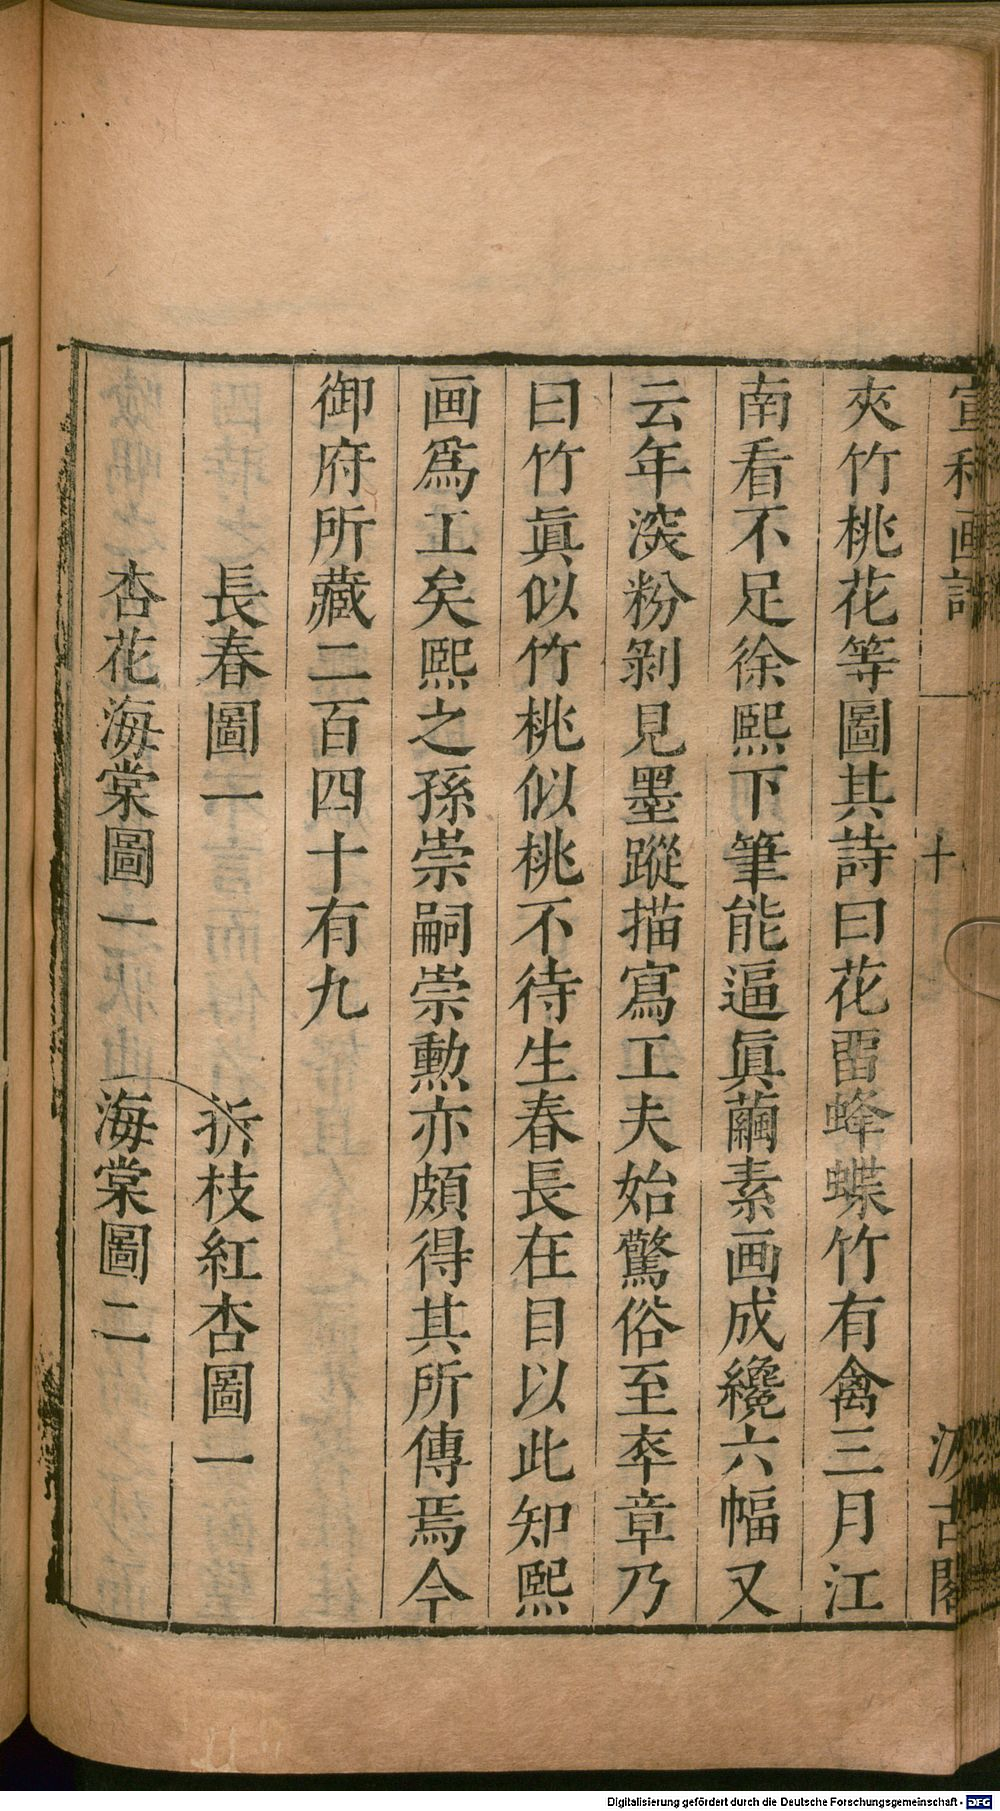 宣和画譜
十
汲古閣
夾竹桃花等圖其詩曰花畱蜂蝶竹有禽三月江
南看不足徐熙下筆能逼眞繭素画成纔六幅又
云年深粉剝見墨蹤描寫工夫始驚俗至卒章乃
曰竹眞似竹桃似桃不待生春長在目以此知熙
画爲工矣熙之孫崇嗣崇勲亦頗得其所傳焉今
御府所藏二百四十有九
長春圖一　折枝紅杏圖一
杏花海棠圖一　海棠圖二
Digitalisierung gefördert durch die Deutsche Forschungsgemeinschaft - DFG